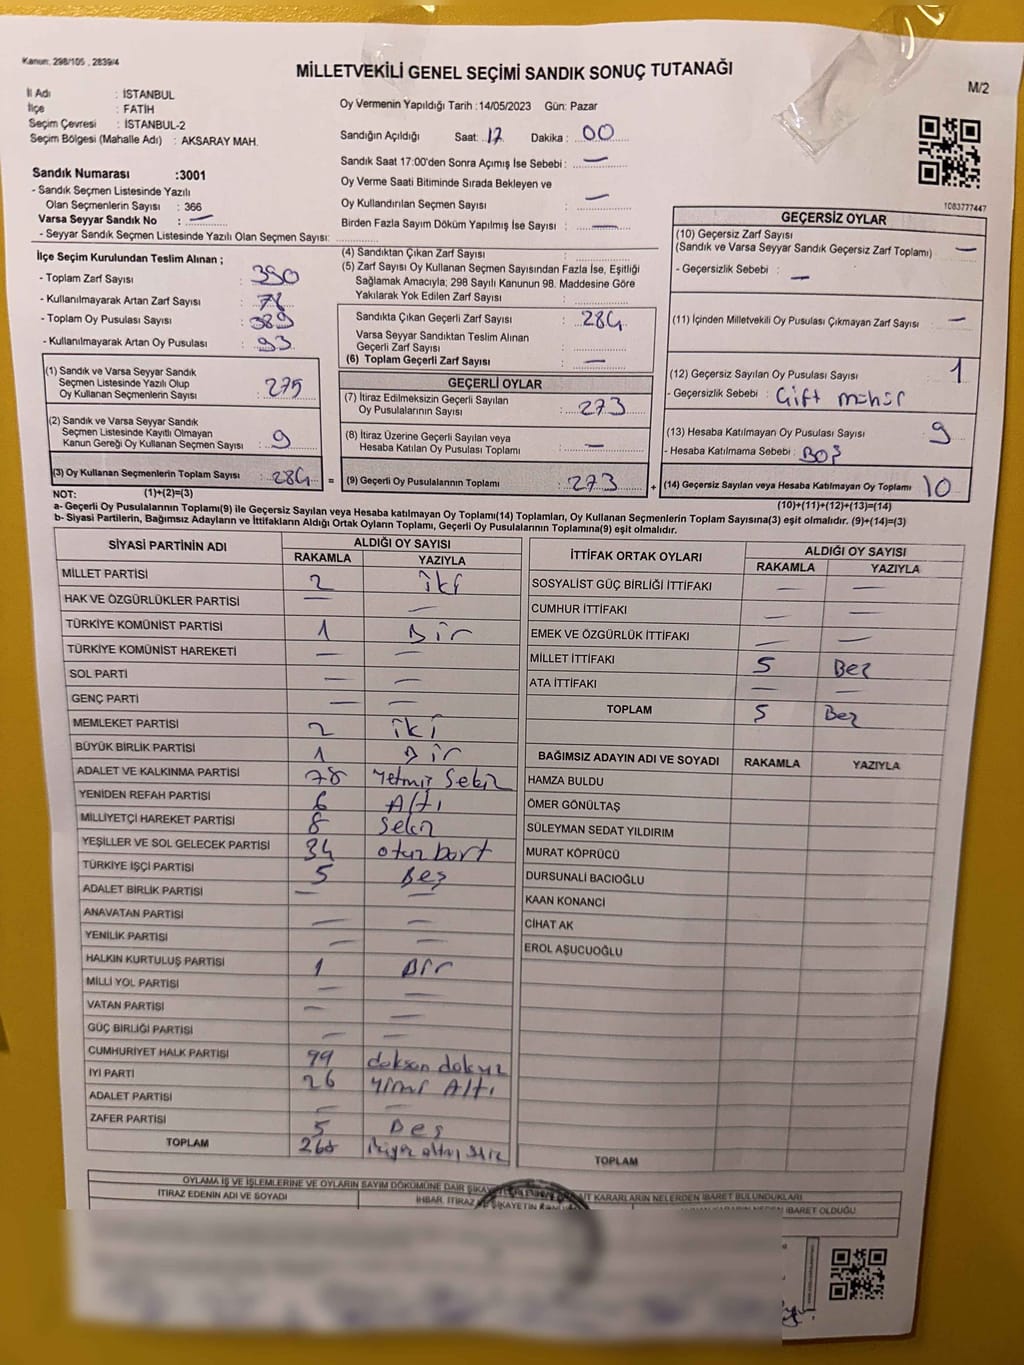 Kanun: 298/105 , 2839/4
MİLLETVEKİLİ GENEL SEÇİMİ SANDIK SONUÇ TUTANAĞI
M/2
İl Adı : İSTANBUL
İlçe : FATİH
Seçim Çevresi : İSTANBUL-2
Seçim Bölgesi (Mahalle Adı) : AKSARAY MAH.
Oy Vermenin Yapıldığı Tarih :14/05/2023 Gün: Pazar
Sandığın Açıldığı Saat: 17 Dakika : 00
Sandık Saat 17:00'den Sonra Açımış İse Sebebi : —
Oy Verme Saati Bitiminde Sırada Bekleyen ve
Oy Kullandırılan Seçmen Sayısı : —
Birden Fazla Sayım Döküm Yapılmış İse Sayısı : —
1083777447
Sandık Numarası :3001
- Sandık Seçmen Listesinde Yazılı
Olan Seçmenlerin Sayısı : 366
Varsa Seyyar Sandık No : —
- Seyyar Sandık Seçmen Listesinde Yazılı Olan Seçmen Sayısı:
İlçe Seçim Kurulundan Teslim Alınan ;
- Toplam Zarf Sayısı :
- Kullanılmayarak Artan Zarf Sayısı :
- Toplam Oy Pusulası Sayısı : 389
- Kullanılmayarak Artan Oy Pusulası : 93
(1) Sandık ve Varsa Seyyar Sandık
Seçmen Listesinde Yazılı Olup
Oy Kullanan Seçmenlerin Sayısı : 275
(2) Sandık ve Varsa Seyyar Sandık
Seçmen Listesinde Kayıtlı Olmayan
Kanun Gereği Oy Kullanan Seçmen Sayısı : 9
(3) Oy Kullanan Seçmenlerin Toplam Sayısı : 284 =
(4) Sandıktan Çıkan Zarf Sayısı :
(5) Zarf Sayısı Oy Kullanan Seçmen Sayısından Fazla İse, Eşitliği
Sağlamak Amacıyla; 298 Sayılı Kanunun 98. Maddesine Göre
Yakılarak Yok Edilen Zarf Sayısı :
Sandıkta Çıkan Geçerli Zarf Sayısı : 284
Varsa Seyyar Sandıktan Teslim Alınan
Geçerli Zarf Sayısı :
(6) Toplam Geçerli Zarf Sayısı : —
GEÇERLİ OYLAR
(7) İtiraz Edilmeksizin Geçerli Sayılan
Oy Pusulalarının Sayısı : 273
(8) İtiraz Üzerine Geçerli Sayılan veya
Hesaba Katılan Oy Pusulası Toplamı : —
(9) Geçerli Oy Pusulalarının Toplamı : 273 +
GEÇERSİZ OYLAR
(10) Geçersiz Zarf Sayısı
(Sandık ve Varsa Seyyar Sandık Geçersiz Zarf Toplamı) —
- Geçersizlik Sebebi : —
(11) İçinden Milletvekili Oy Pusulası Çıkmayan Zarf Sayısı : —
(12) Geçersiz Sayılan Oy Pusulası Sayısı : 1
- Geçersizlik Sebebi : Çift mühür
(13) Hesaba Katılmayan Oy Pusulası Sayısı : 9
- Hesaba Katılmama Sebebi : BOŞ
(14) Geçersiz Sayılan veya Hesaba Katılmayan Oy Toplamı : 10
NOT: (1)+(2)=(3)
(10)+(11)+(12)+(13)=(14)
a- Geçerli Oy Pusulalarının Toplamı(9) ile Geçersiz Sayılan veya Hesaba katılmayan Oy Toplamı(14) Toplamları, Oy Kullanan Seçmenlerin Toplam Sayısına(3) eşit olmalıdır. (9)+(14)=(3)
b- Siyasi Partilerin, Bağımsız Adayların ve İttifakların Aldığı Ortak Oyların Toplamı, Geçerli Oy Pusulalarının Toplamına(9) eşit olmalıdır.
SİYASİ PARTİNİN ADI ALDIĞI OY SAYISI
RAKAMLA YAZIYLA
MİLLET PARTİSİ 2 iki
HAK VE ÖZGÜRLÜKLER PARTİSİ — —
TÜRKİYE KOMÜNİST PARTİSİ 1 Bir
TÜRKİYE KOMÜNİST HAREKETİ — —
SOL PARTİ — —
GENÇ PARTİ — —
MEMLEKET PARTİSİ 2 iki
BÜYÜK BİRLİK PARTİSİ 1 Bir
ADALET VE KALKINMA PARTİSİ 78 Yetmiş Sekiz
YENİDEN REFAH PARTİSİ 6 Altı
MİLLİYETÇİ HAREKET PARTİSİ 8 Sekiz
YEŞİLLER VE SOL GELECEK PARTİSİ 34 otuz Dört
TÜRKİYE İŞÇİ PARTİSİ 5 Beş
ADALET BİRLİK PARTİSİ — —
ANAVATAN PARTİSİ — —
YENİLİK PARTİSİ — —
HALKIN KURTULUŞ PARTİSİ 1 Bir
MİLLİ YOL PARTİSİ — —
VATAN PARTİSİ — —
GÜÇ BİRLİĞİ PARTİSİ — —
CUMHURİYET HALK PARTİSİ 99 doksan dokuz
İYİ PARTİ 26 Yirmi Altı
ADALET PARTİSİ — —
ZAFER PARTİSİ 5 Beş
TOPLAM 268
İTTİFAK ORTAK OYLARI ALDIĞI OY SAYISI
RAKAMLA YAZIYLA
SOSYALİST GÜÇ BİRLİĞİ İTTİFAKI — —
CUMHUR İTTİFAKI — —
EMEK VE ÖZGÜRLÜK İTTİFAKI — —
MİLLET İTTİFAKI 5 Beş
ATA İTTİFAKI — —
TOPLAM 5 Beş
BAĞIMSIZ ADAYIN ADI VE SOYADI RAKAMLA YAZIYLA
HAMZA BULDU
ÖMER GÖNÜLTAŞ
SÜLEYMAN SEDAT YILDIRIM
MURAT KÖPRÜCÜ
DURSUNALİ BACIOĞLU
KAAN KONANCİ
CİHAT AK
EROL AŞUCUOĞLU
TOPLAM
OYLAMA İŞ VE İŞLEMLERİNE VE OYLARIN SAYIM DÖKÜMÜNE DAİR KARARLARIN NELERDEN İBARET BULUNDUKLARI
İTİRAZ EDENİN ADI VE SOYADI
İHBAR, İTİRAZ İBARET OLDUĞU